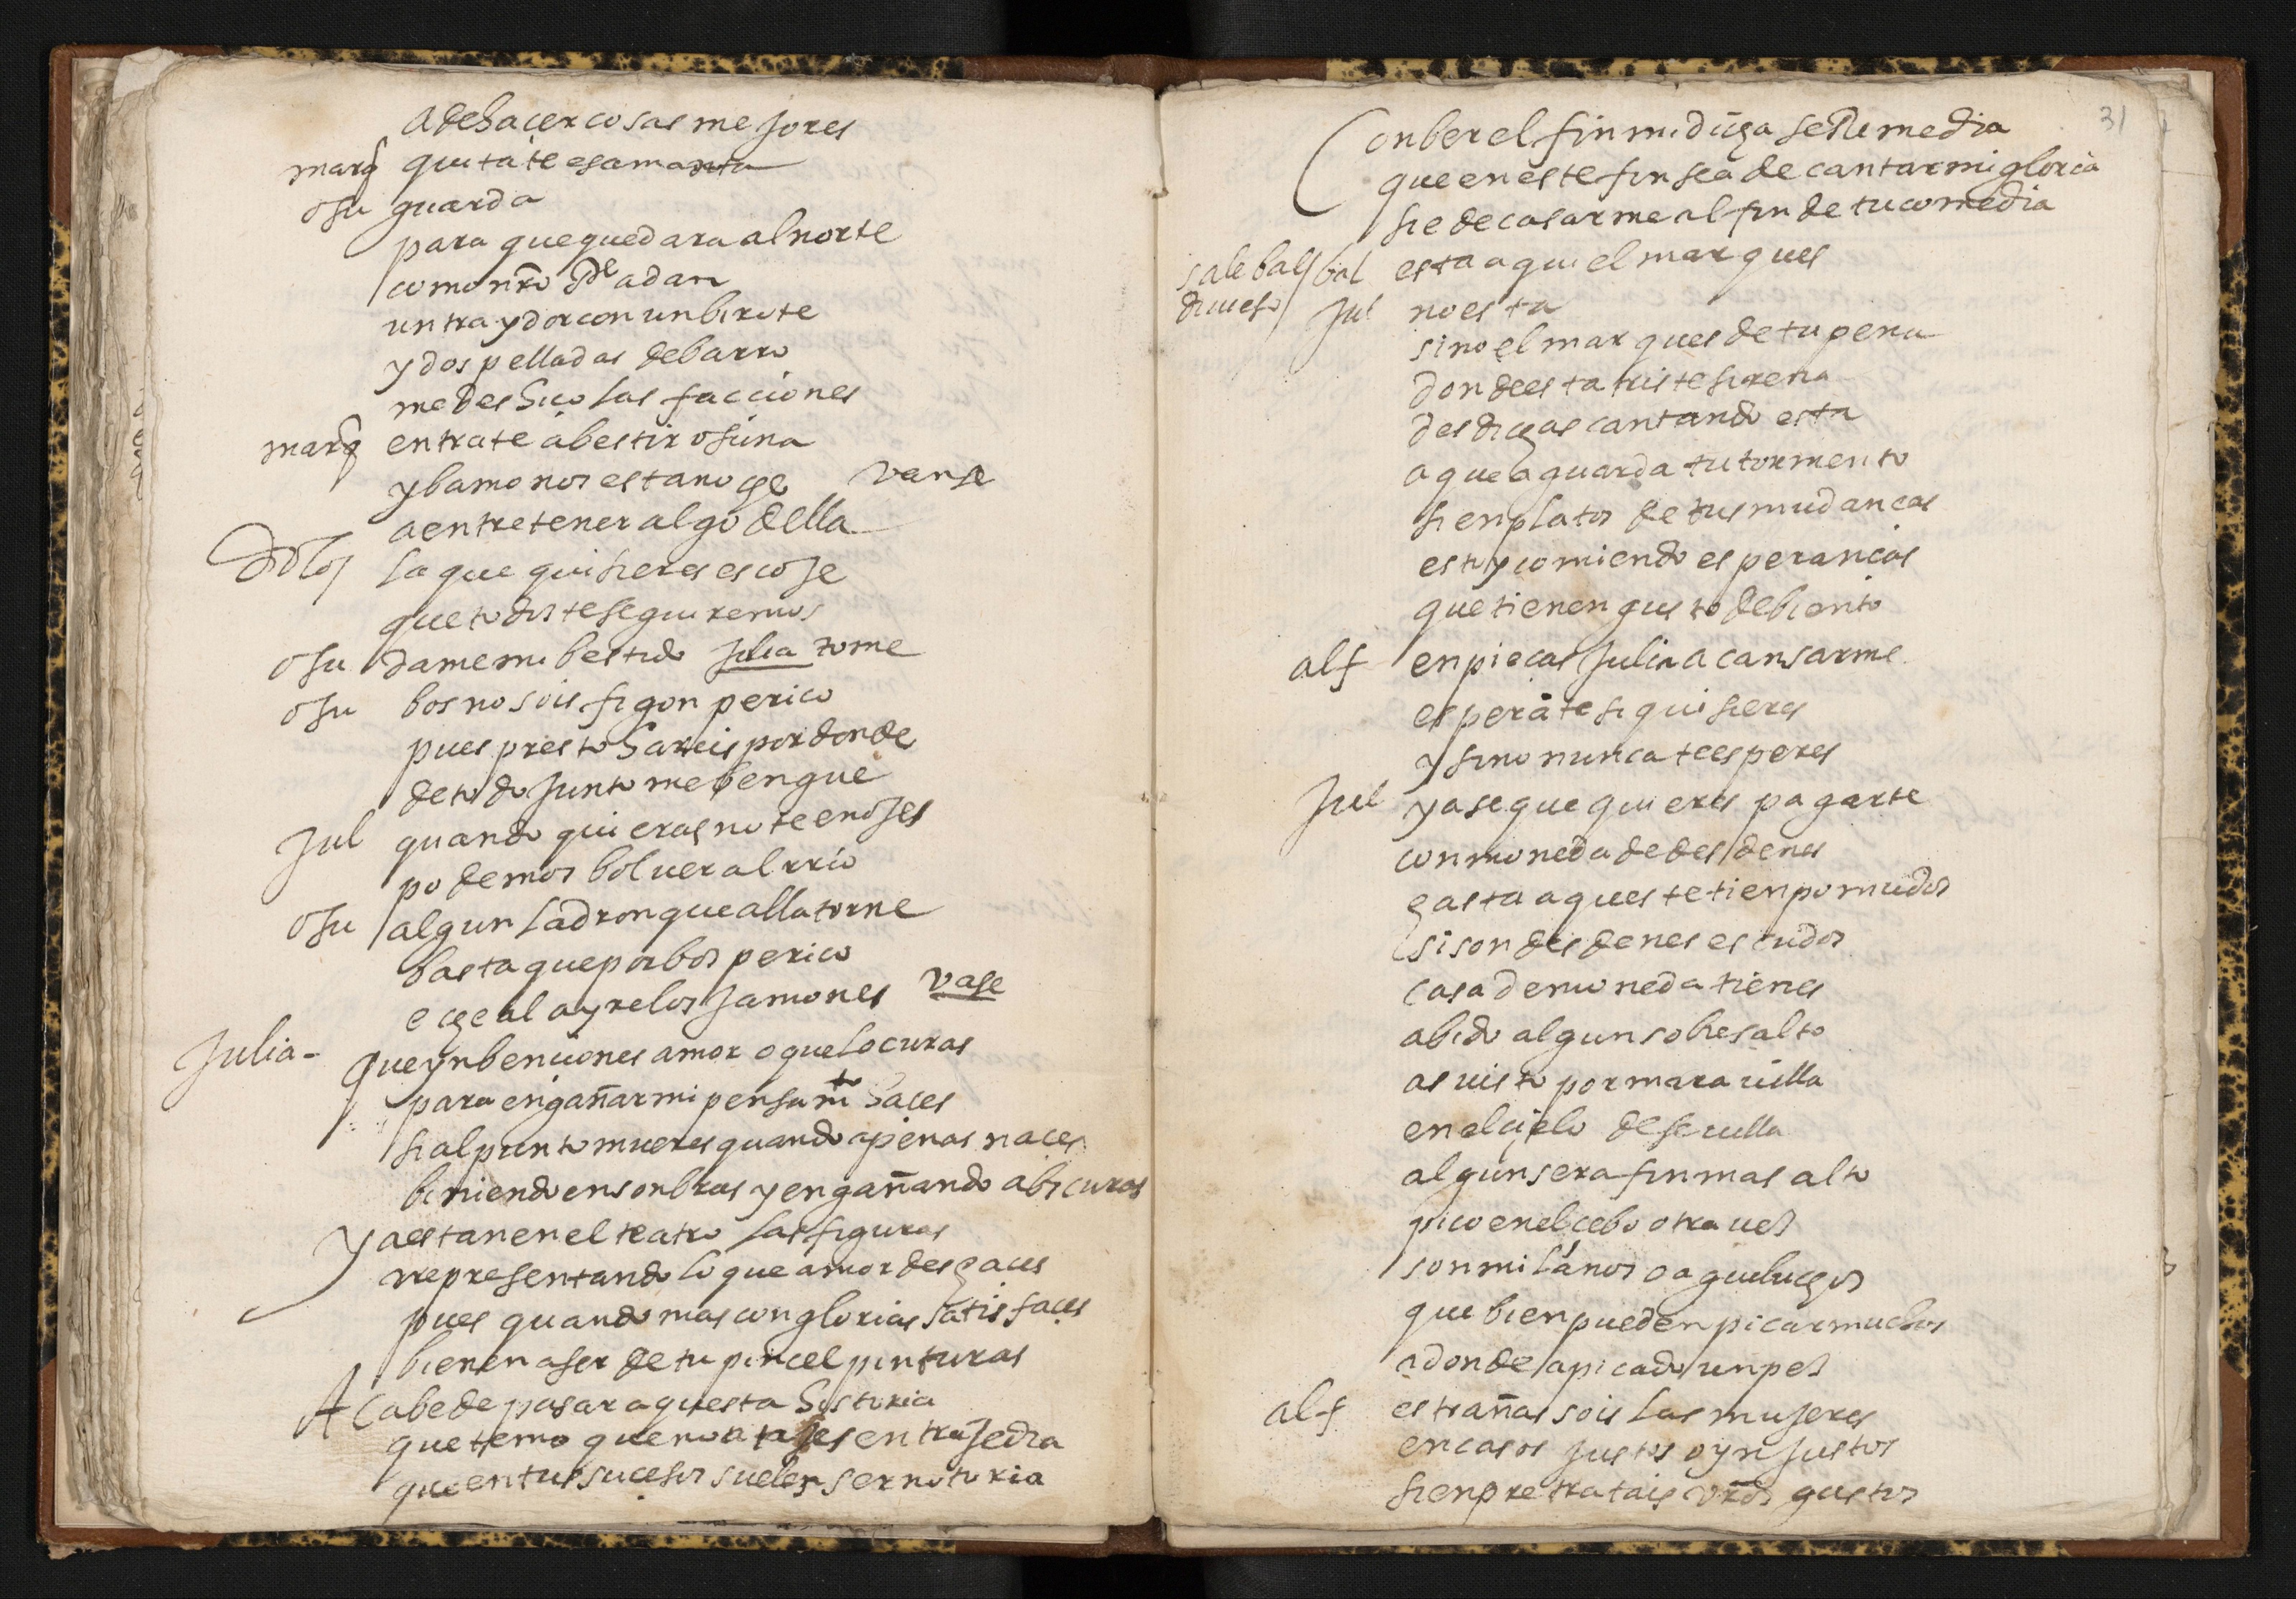 a de hacer cosas mejores
marq quitate esa manta
osu guarda
para que quedara al norte
como nro Pe adan
un traydor con un birote
y dos pelladas de barro
me deshico las facciones
marq entrate a bestir osuna
y bamonos esta noche vanse
a entretener algo della
dolos la que quisieres escoje
que todos te seguiremos
osu dame mi bestido Julia tome
osu bos no sois figon perico
pues presto hareis por donde
de todo junto me bengue
Jul quando quieras no te enojes
podemos bolver al rrio
osu algun ladron que alla torne
basta que por bos perico
eche al ayre los jamones vase
Julia - Que ynbenciones amor o que locuras
para engañar mi pensamto haces
si al punto mueres quando apenas naces
biniendo en sonbras y engañando abscuras
Ya estan en el teatro las figuras
rrepresentando lo que amor deshaces
pues quando mas con glorias satisfaces
bienen a ser de tu pincel pinturas
Acabe de pasar aquesta historia
que temo que no atajes en trajedia
que en tus sucesos suelen ser notoria
31
Con ber el fin mi dicha se Remedia
que en este fin sea de cantar mi gloria
si e de casarme al fin de tu comedia
sale bals bal esta aqui el marques
divieso Jul no esta
sino el marques de tu pena
donde esta triste sirena
desdichas cantando esta
a que aguarda tu tormento
si en platos de tus mudancas
estoy comiendo esperancas
que tienen gusto de biento
alf enpiecas Julia a cansarme
esperate si quisieres
y sino nunca te esperes
Jul ya se que quieres pagarte
con moneda de desdenes
gasta aqueste tienpo mudos
si son desdenes escudos
casa de moneda tienes
abido algun sobresalto
as visto por maravilla
en el cielo de sevilla
algun serafin mas alto
pico en el cebo otra vez
son milanos o aguiluchos
que bien pueden picar muchos
adonde a picado un pez
alf estrañas sois las mujeres
en casos justos o ynjustos
sienpre tratais vros gustos